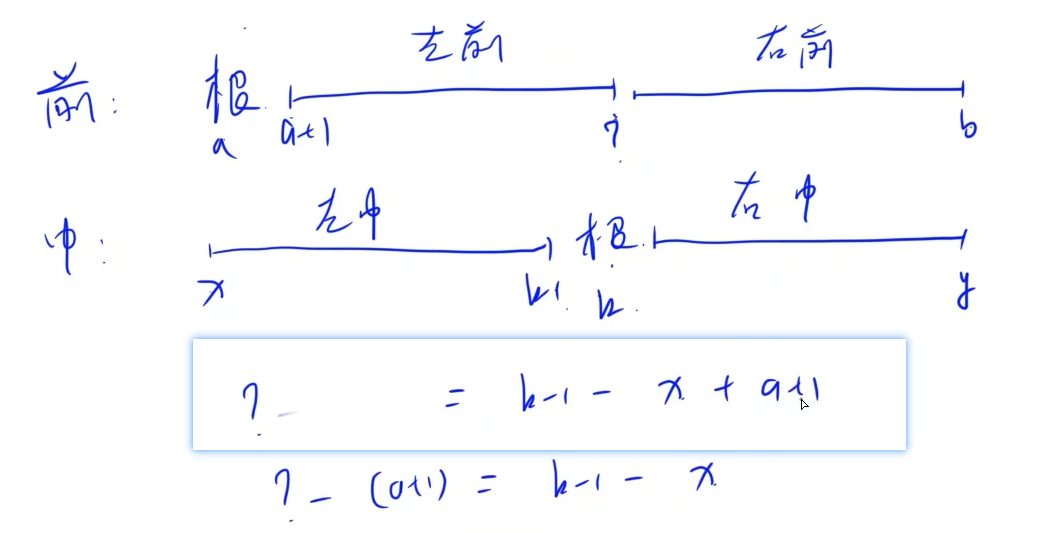 左前 右前
前: 根
a a+1 ? b
左中 右中
中: 根
x k-1 k y
? - = k-1 - x + a+1
? - (a+1) = k-1 - x